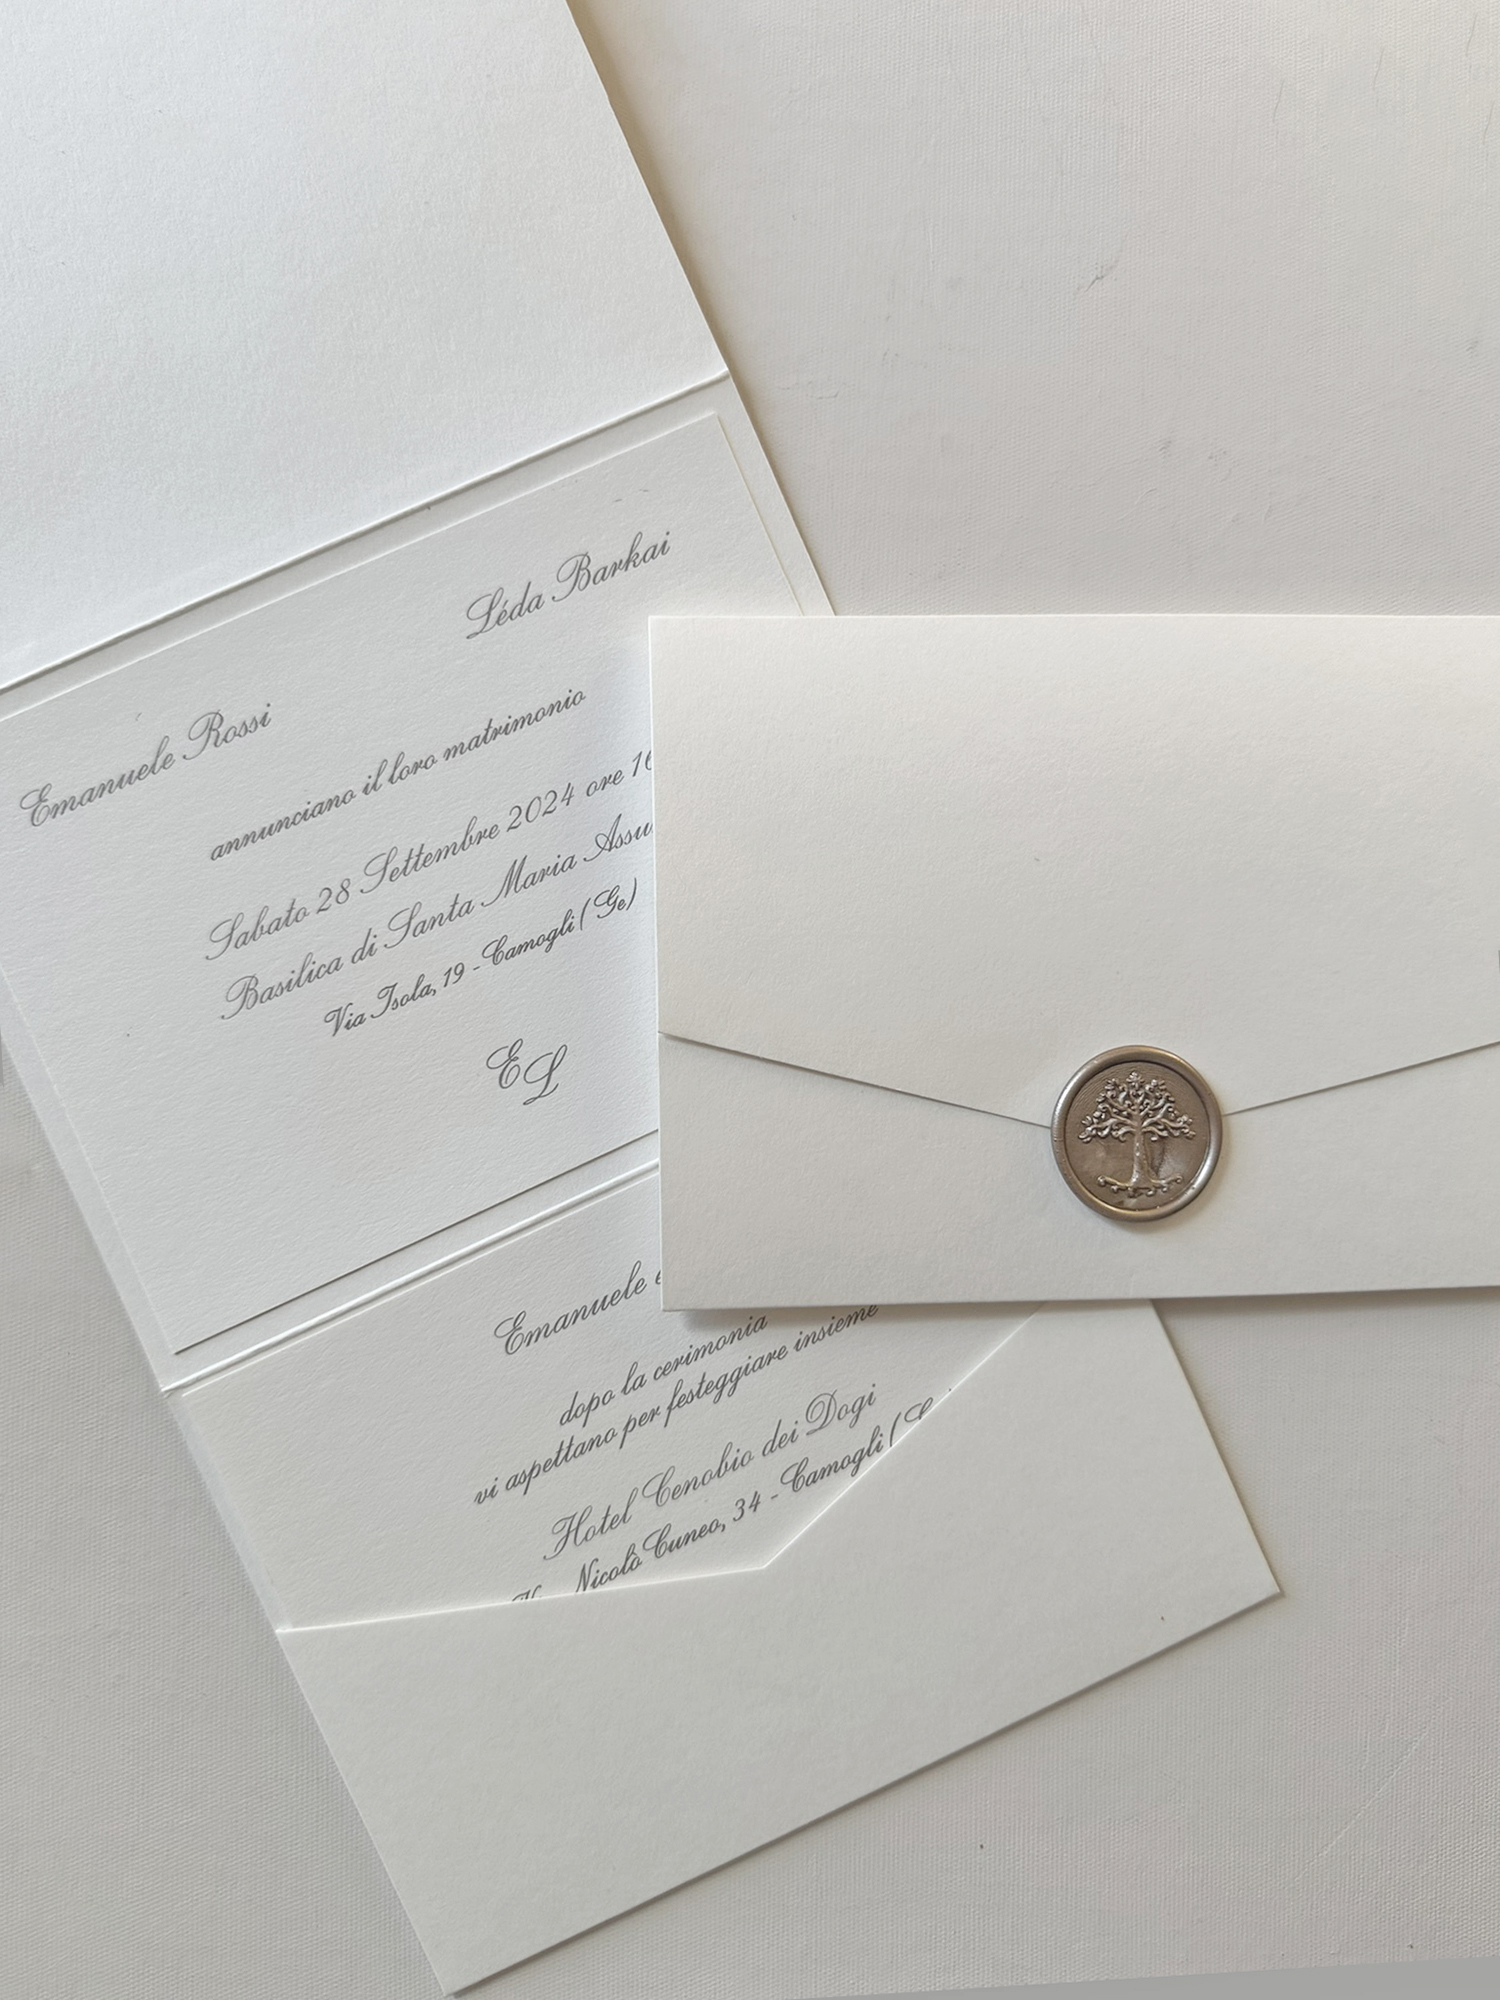 Léda Barkai
Emanuele Rossi
annunciano il loro matrimonio
Sabato 28 Settembre 2024 ore
Basilica di Santa Maria
Via Isola, 19 - Camogli ( Ge)
EL
Emanuele
dopo la cerimonia
vi aspettano per festeggiare insieme
Hotel Cenobio dei Dogi
Nicolò Cuneo, 34 - Camogli (